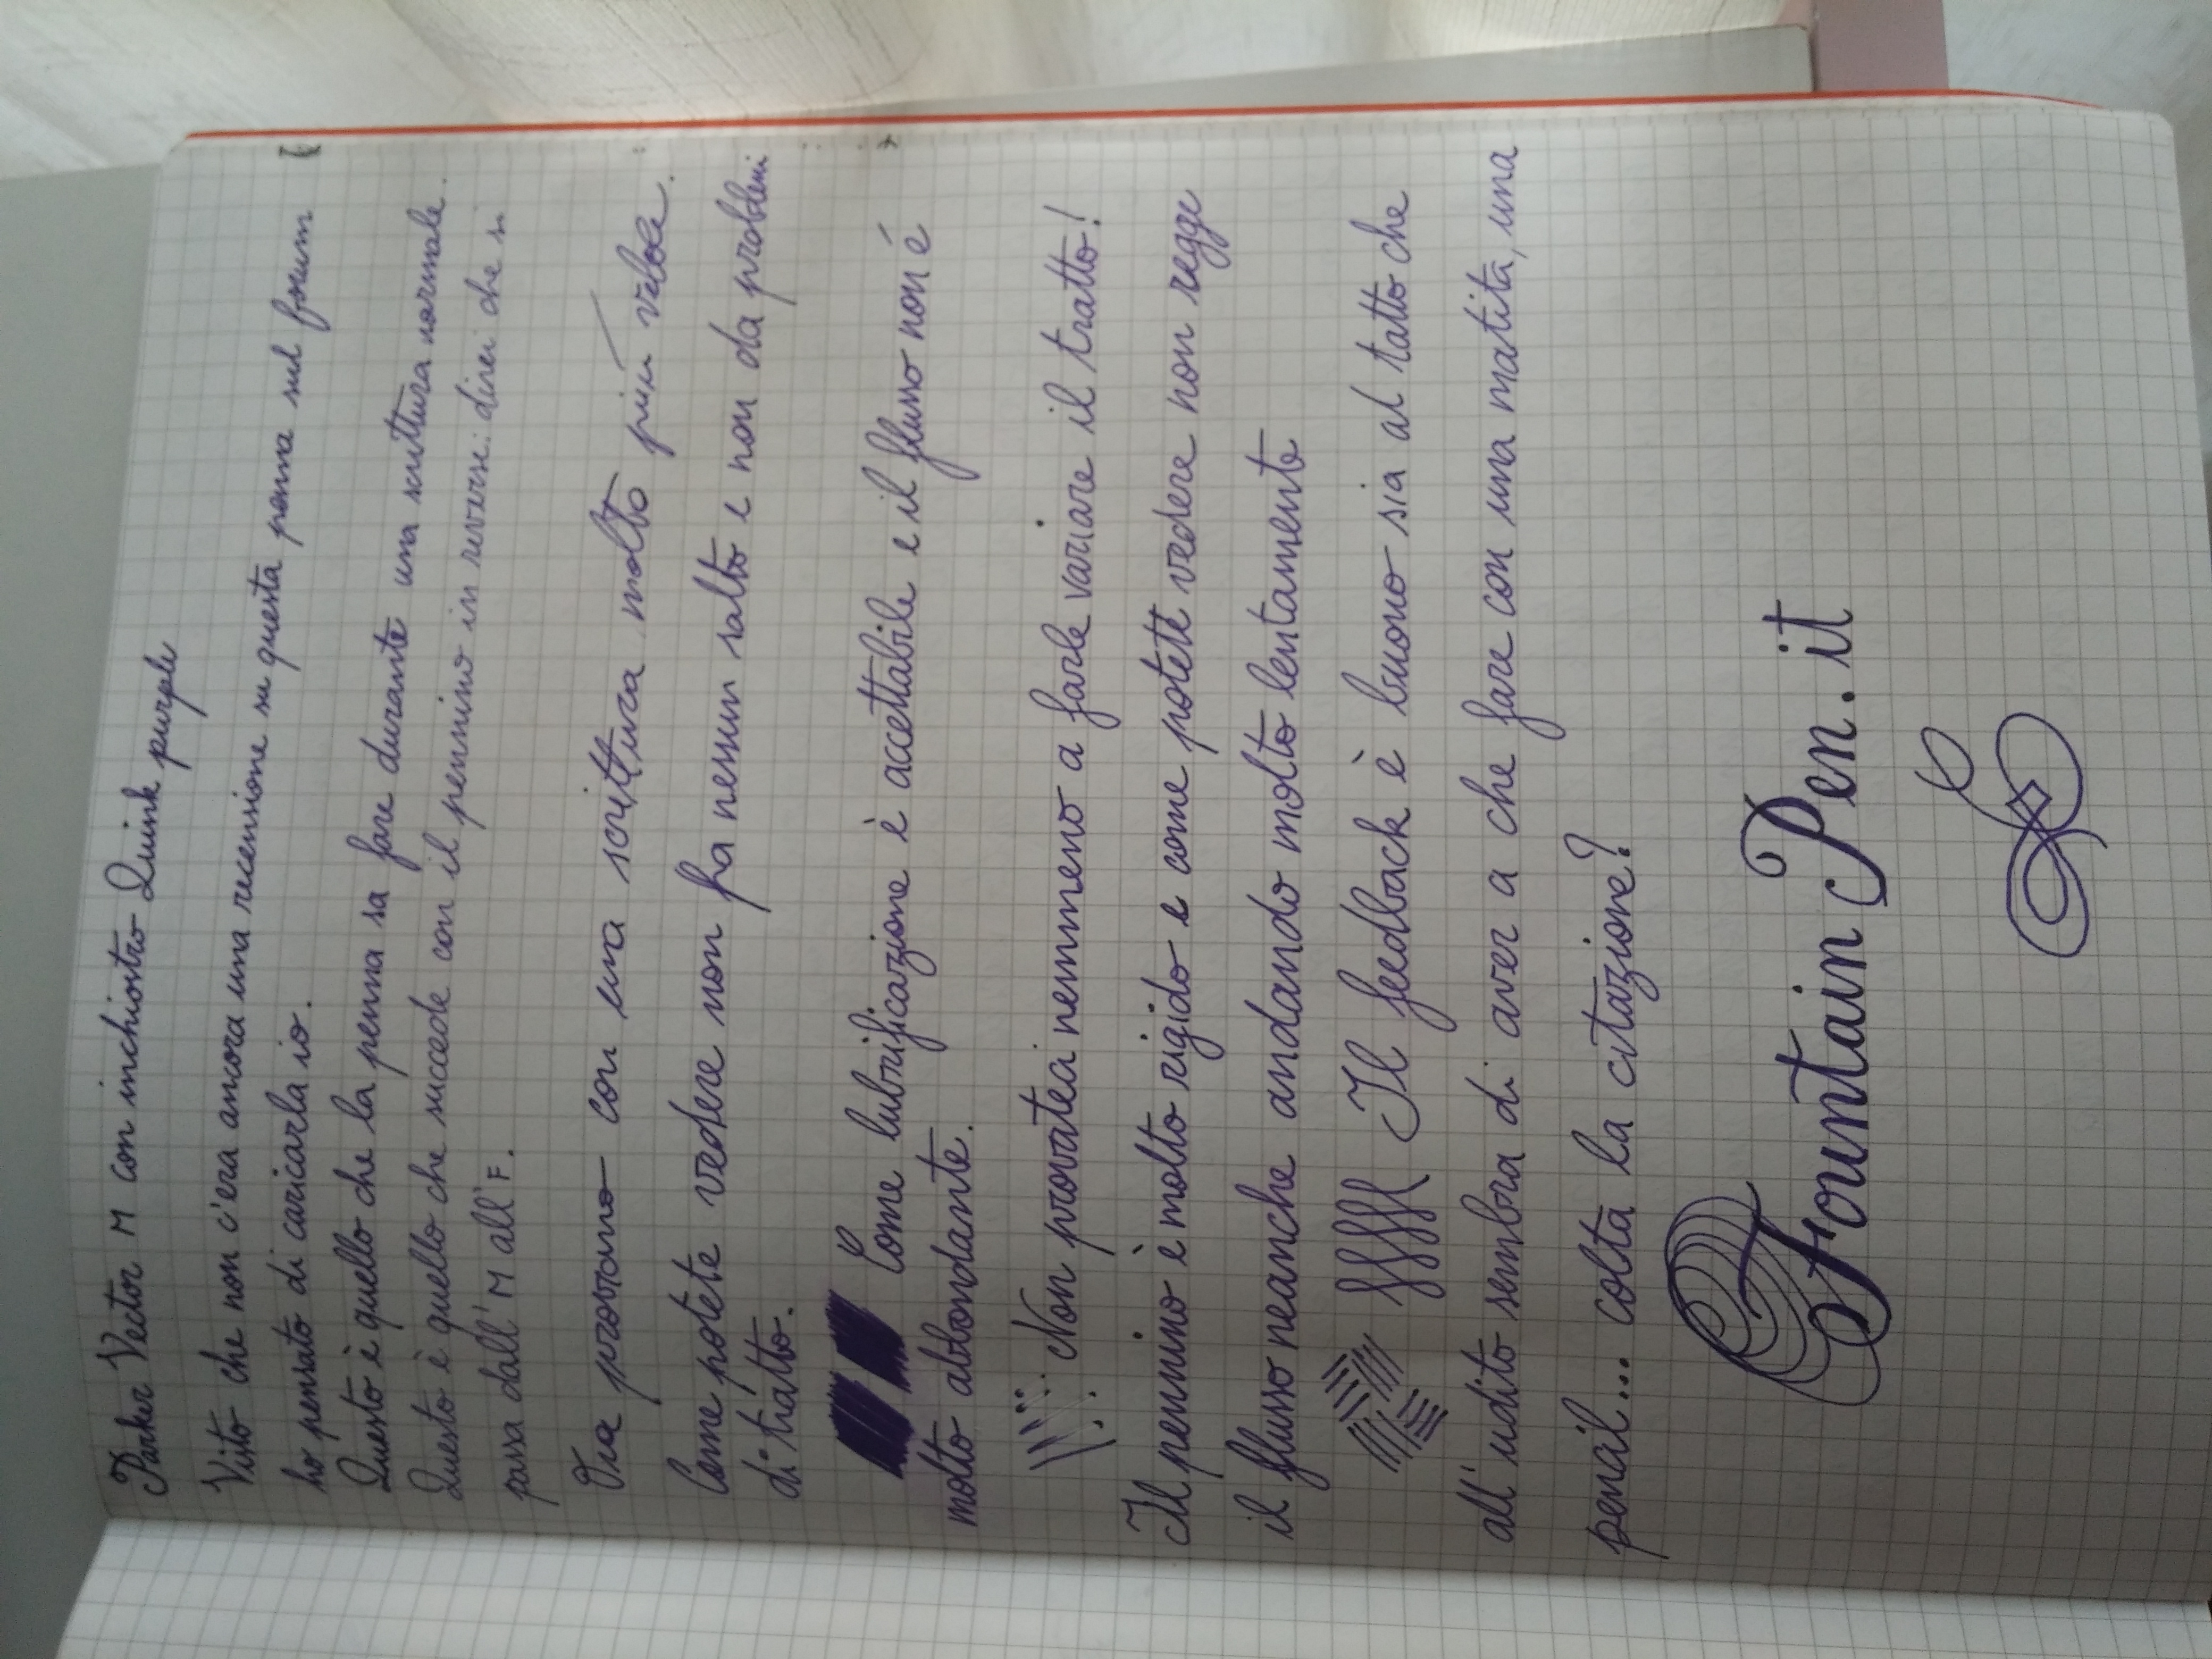 Parker Vector M con inchiostro Quink purple
Visto che non c'era ancora una recensione su questa penna sul forum
ho pensato di caricarla io.
Questo è quello che la penna sa fare durante una scrittura normale.
Questo è quello che succede con il pennino in reverse: direi che si
passa dall'M all'F.
Ora proviamo con una scrittura molto più veloce.
Come potete vedere non fa nessun salto e non da problemi
di tratto.
Come lubrificazione è accettabile e il flusso non é
molto abbondante.
Non provateci nemmeno a farle variare il tratto!
Il pennino è molto rigido e come potete vedere non regge
il flusso neanche andando molto molto lentamente
Il feedback è buono sia al tatto che
all'udito sembra di aver a che fare con una matita, una
pencil... colta la citazione?
Fountain Pen.it